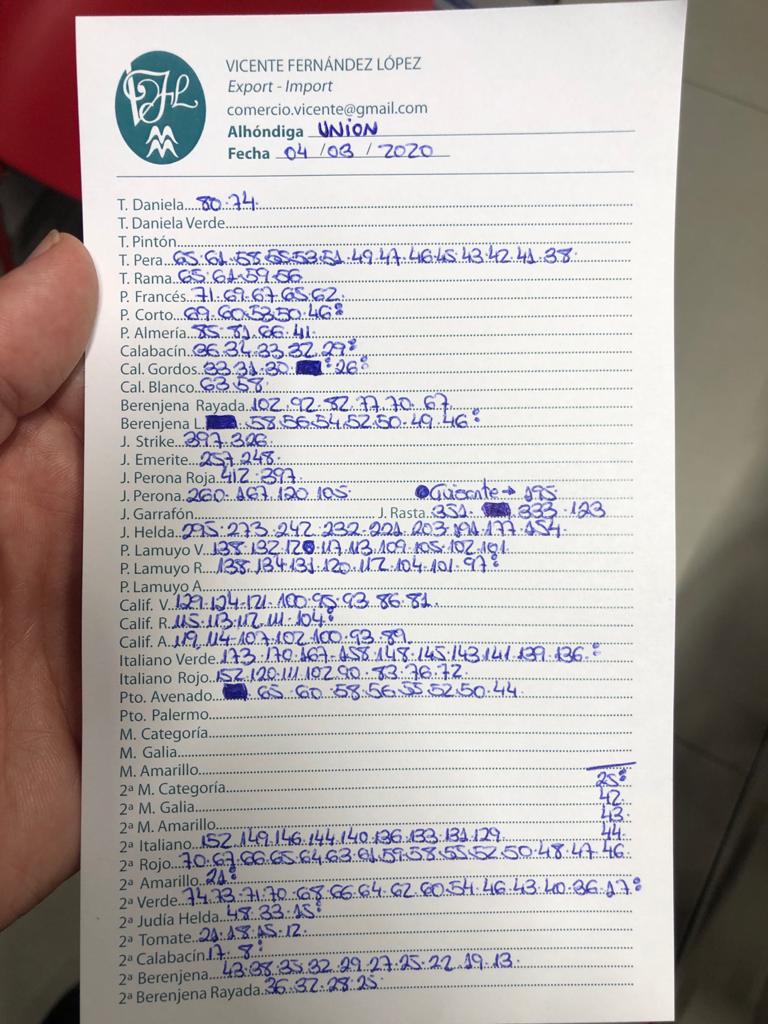 VICENTE FERNÁNDEZ LÓPEZ
Export - Import
comercio.vicente@gmail.com
Alhóndiga UNION
Fecha 04 / 03 / 2020
T. Daniela...80.74.
T. Daniela Verde
T. Pintón
T. Pera...65.61.58.55.53.51.49.47.46.45.43.42.41.38.
T. Rama...65.61.59.56
P. Francés...71.69.67.65.62.
P. Corto...69.60.53.50.46:
P. Almería...85.81.66.41.
Calabacín...36.34.33.32.29:
Cal. Gordos...33.31.30. : 26:
Cal. Blanco...63.58.
Berenjena Rayada...102.92.82.77.70.67
Berenjena L. .58.56.54.52.50.49.46:
J. Strike...397.326.
J. Emerite...257.248.
J. Perona Roja...412.397.
J. Perona...260.167.120.105. Guisante → 195
J. Garrafón J. Rasta...351. 333.123
J. Helda...295.273.242.232.221.203.191.177.154.
P. Lamuyo V...138.132.12 .117.113.109.105.102.101.
P. Lamuyo R...138.134.131.120.112.104.101.97:
P. Lamuyo A
Calif. V...129.124.121.100.95.93.86.81.
Calif. R...115.113.112.111.104:
Calif. A...119.114.107.102.100.93.89.
Italiano Verde...173.170.167.158.148.145.143.141.139.136.:
Italiano Rojo...152.120.111.102.90.83.76.72.
Pto. Avenado... 65.60.58.56.55.52.50.44.
Pto. Palermo
M. Categoría
M. Galia
M. Amarillo
2ª M. Categoría 25:
2ª M. Galia 42.
2ª M. Amarillo 43.
2ª Italiano...152.149.146.144.140.136.133.131.129. 44.
2ª Rojo...70.67.66.65.64.63.61.59.58.55.52.50.48.47.46.
2ª Amarillo...21:
2ª Verde...74.73.71.70.68.66.64.62.60.54.46.43.40.36.17:
2ª Judía Helda...48.33.15:
2ª Tomate...21.18.15.12.
2ª Calabacín...17.8:
2ª Berenjena...43.38.35.32.29.27.25.22.19.13.
2ª Berenjena Rayada...36.32.28.25.